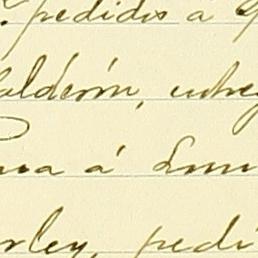 pedidos a
alderón, entreg
sa á Emi
rley, pedi